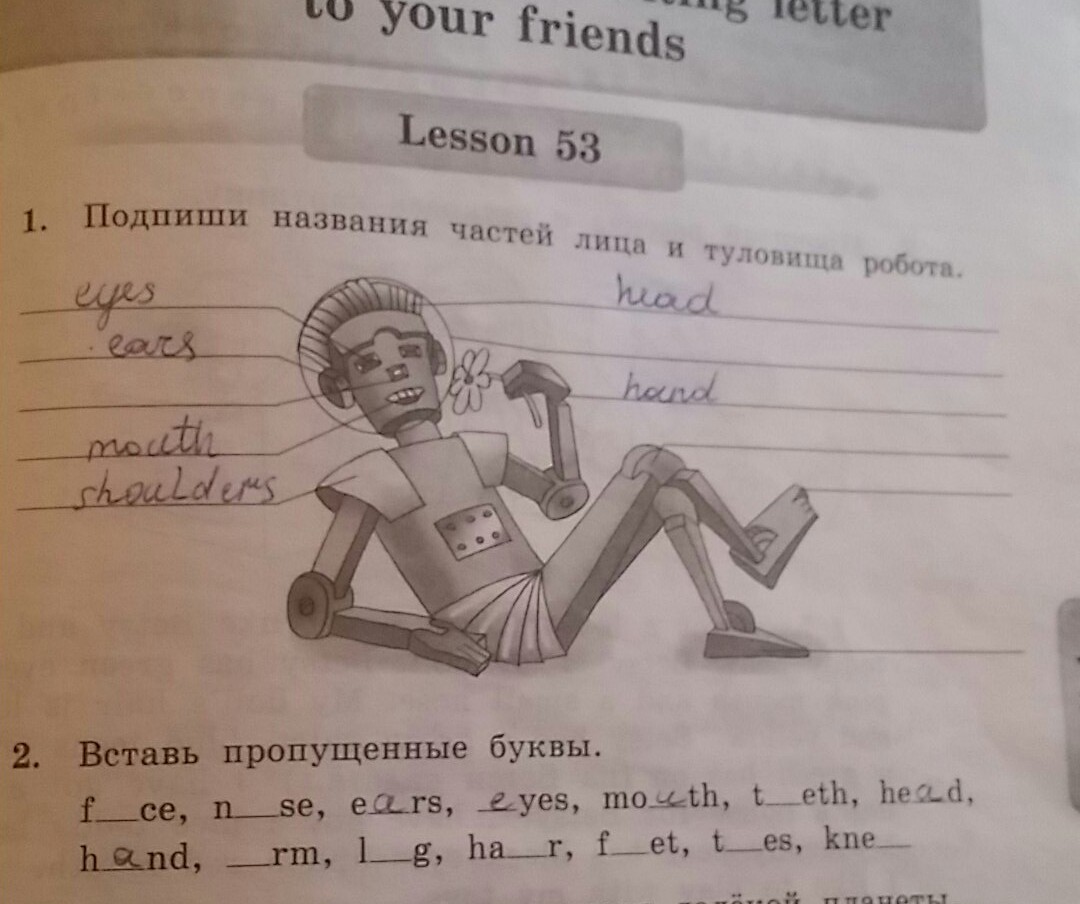 letter
to your friends
Lesson 53
1. Подпиши названия частей лица и туловища робота.
eyes
head
ears
hand
mouth
shoulders
2. Вставь пропущенные буквы.
f__ce, n__se, ears, eyes, mouth, t__eth, head,
hand, __rm, l__g, ha__r, f__et, t__es, kne__
планеты